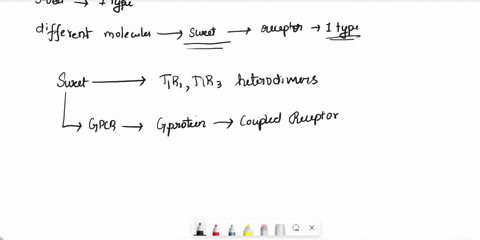 → 1 type
different molecules → sweet → receptor → 1 type
Sweet → T1R1, T1R3 heterodimers
GPCR → G protein → Coupled Receptor